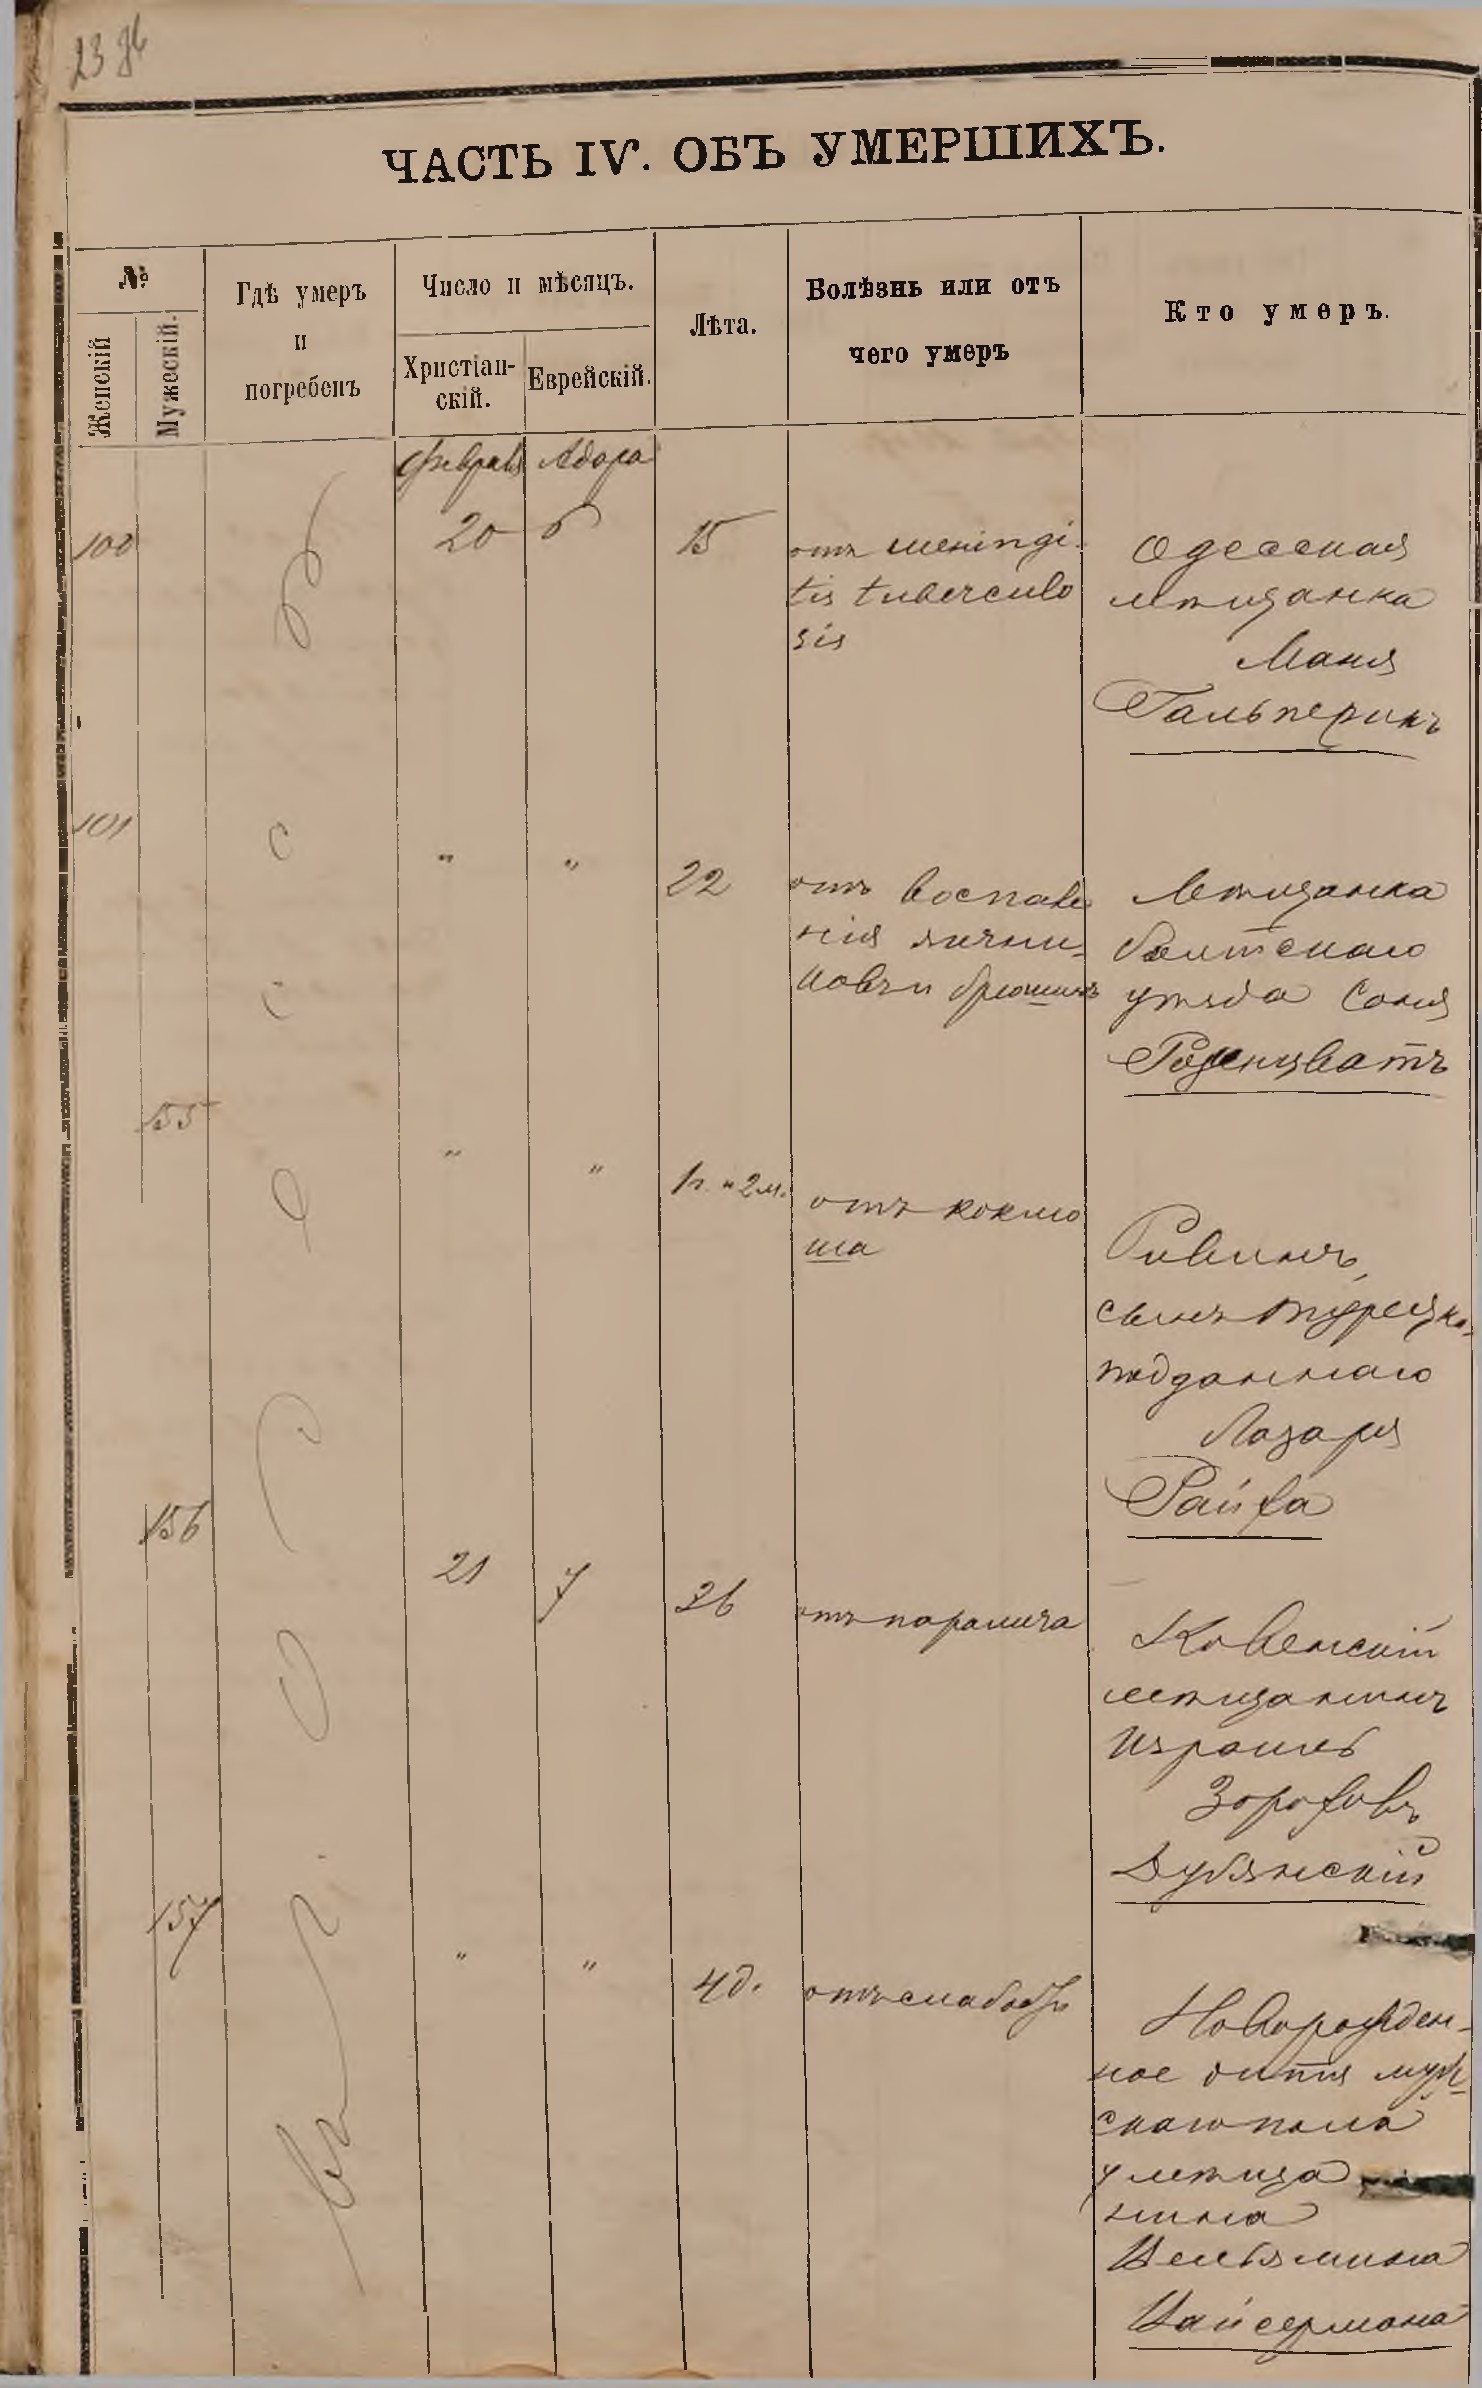 23 об
ЧАСТЬ IV. ОБЪ УМЕРШИХЪ.
№
Женскій
Мужескій.
Гдѣ умеръ
и
погребенъ
Число и мѣсяцъ.
Христіан-
скій.
Еврейскій.
Лѣта.
Болѣзнь или отъ
чего умеръ
Кто умеръ.
Февраля Адара
въ г. Одессѣ
100 20 6 15
отъ meningi-
tis tuberculo
sis
Одесская
мѣщанка
Маня
Гальперинъ
101 " " 22
отъ воспале
нія яични-
ковъ и брюшины
Мѣщанка
балтскаго
уѣзда Соня
Розенцватъ
155 " " 1 г. и 2 м.
отъ коклю
ша
Рувинъ,
сынъ турецка
подданнаго
Лазаря
Райха
156 21 7 26
отъ паралича
Ковенскій
мѣщанинъ
Израиль
Зороховъ
Дубянскій
157 " " 4 д.
отъ слабости
Новорожден-
ное дитя муж-
скаго пола
у мѣща
нина
Вельямина
Вайсермана